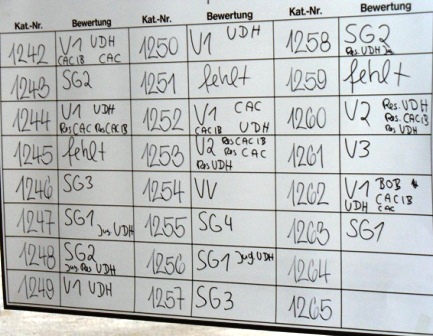 Kat.-Nr. Bewertung Kat-Nr. Bewertung Kat.-Nr. Bewertung
1242 V1 UDH CACIB CAC
1243 SG2
1244 V1 UDH Res CAC Res CACIB
1245 fehlt
1246 SG3
1247 SG1 Jug UDH
1248 SG2 Jug Res UDH
1249 V1 UDH
1250 V1 UDH
1251 fehlt
1252 V1 CAC CACIB UDH
1253 V2 Res CACIB Res CAC Res UDH
1254 VV
1255 SG4
1256 SG1 Jug UDH
1257 SG3
1258 SG2 Res. UDH
1259 fehlt
1260 V2 Res. UDH Res. CACIB Res UDH
1261 V3
1262 V1 BOB UDH CACIB CAC
1263 SG1
1264
1265